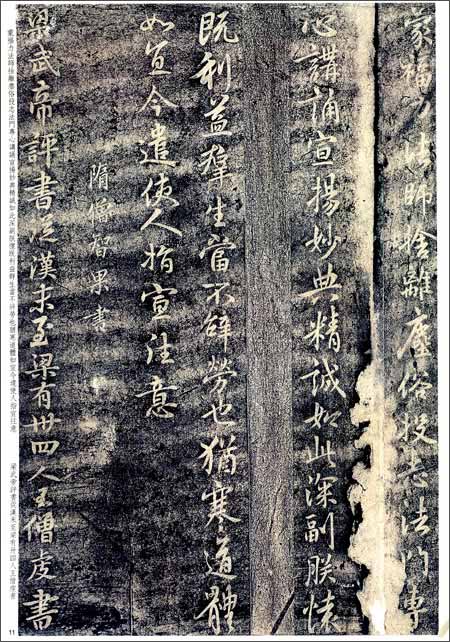 家福力法師捨離塵俗投志法門專
心講誦宣揚妙典精誠如此深副朕懷
既利益羣生當不辭勞也猶寒道體
如宜今遣使人指宣往意
隋僧智果書
梁武帝評書從漢末至梁有卅四人王僧虔書
家福力法師捨離塵俗投志法門專心講誦宣揚妙典精誠如此深副朕懷既利益群生當不辭勞也猶寒道體如宜今遣使人指宣往意
梁武帝評書從漢末至梁有卅四人王僧虔書
11